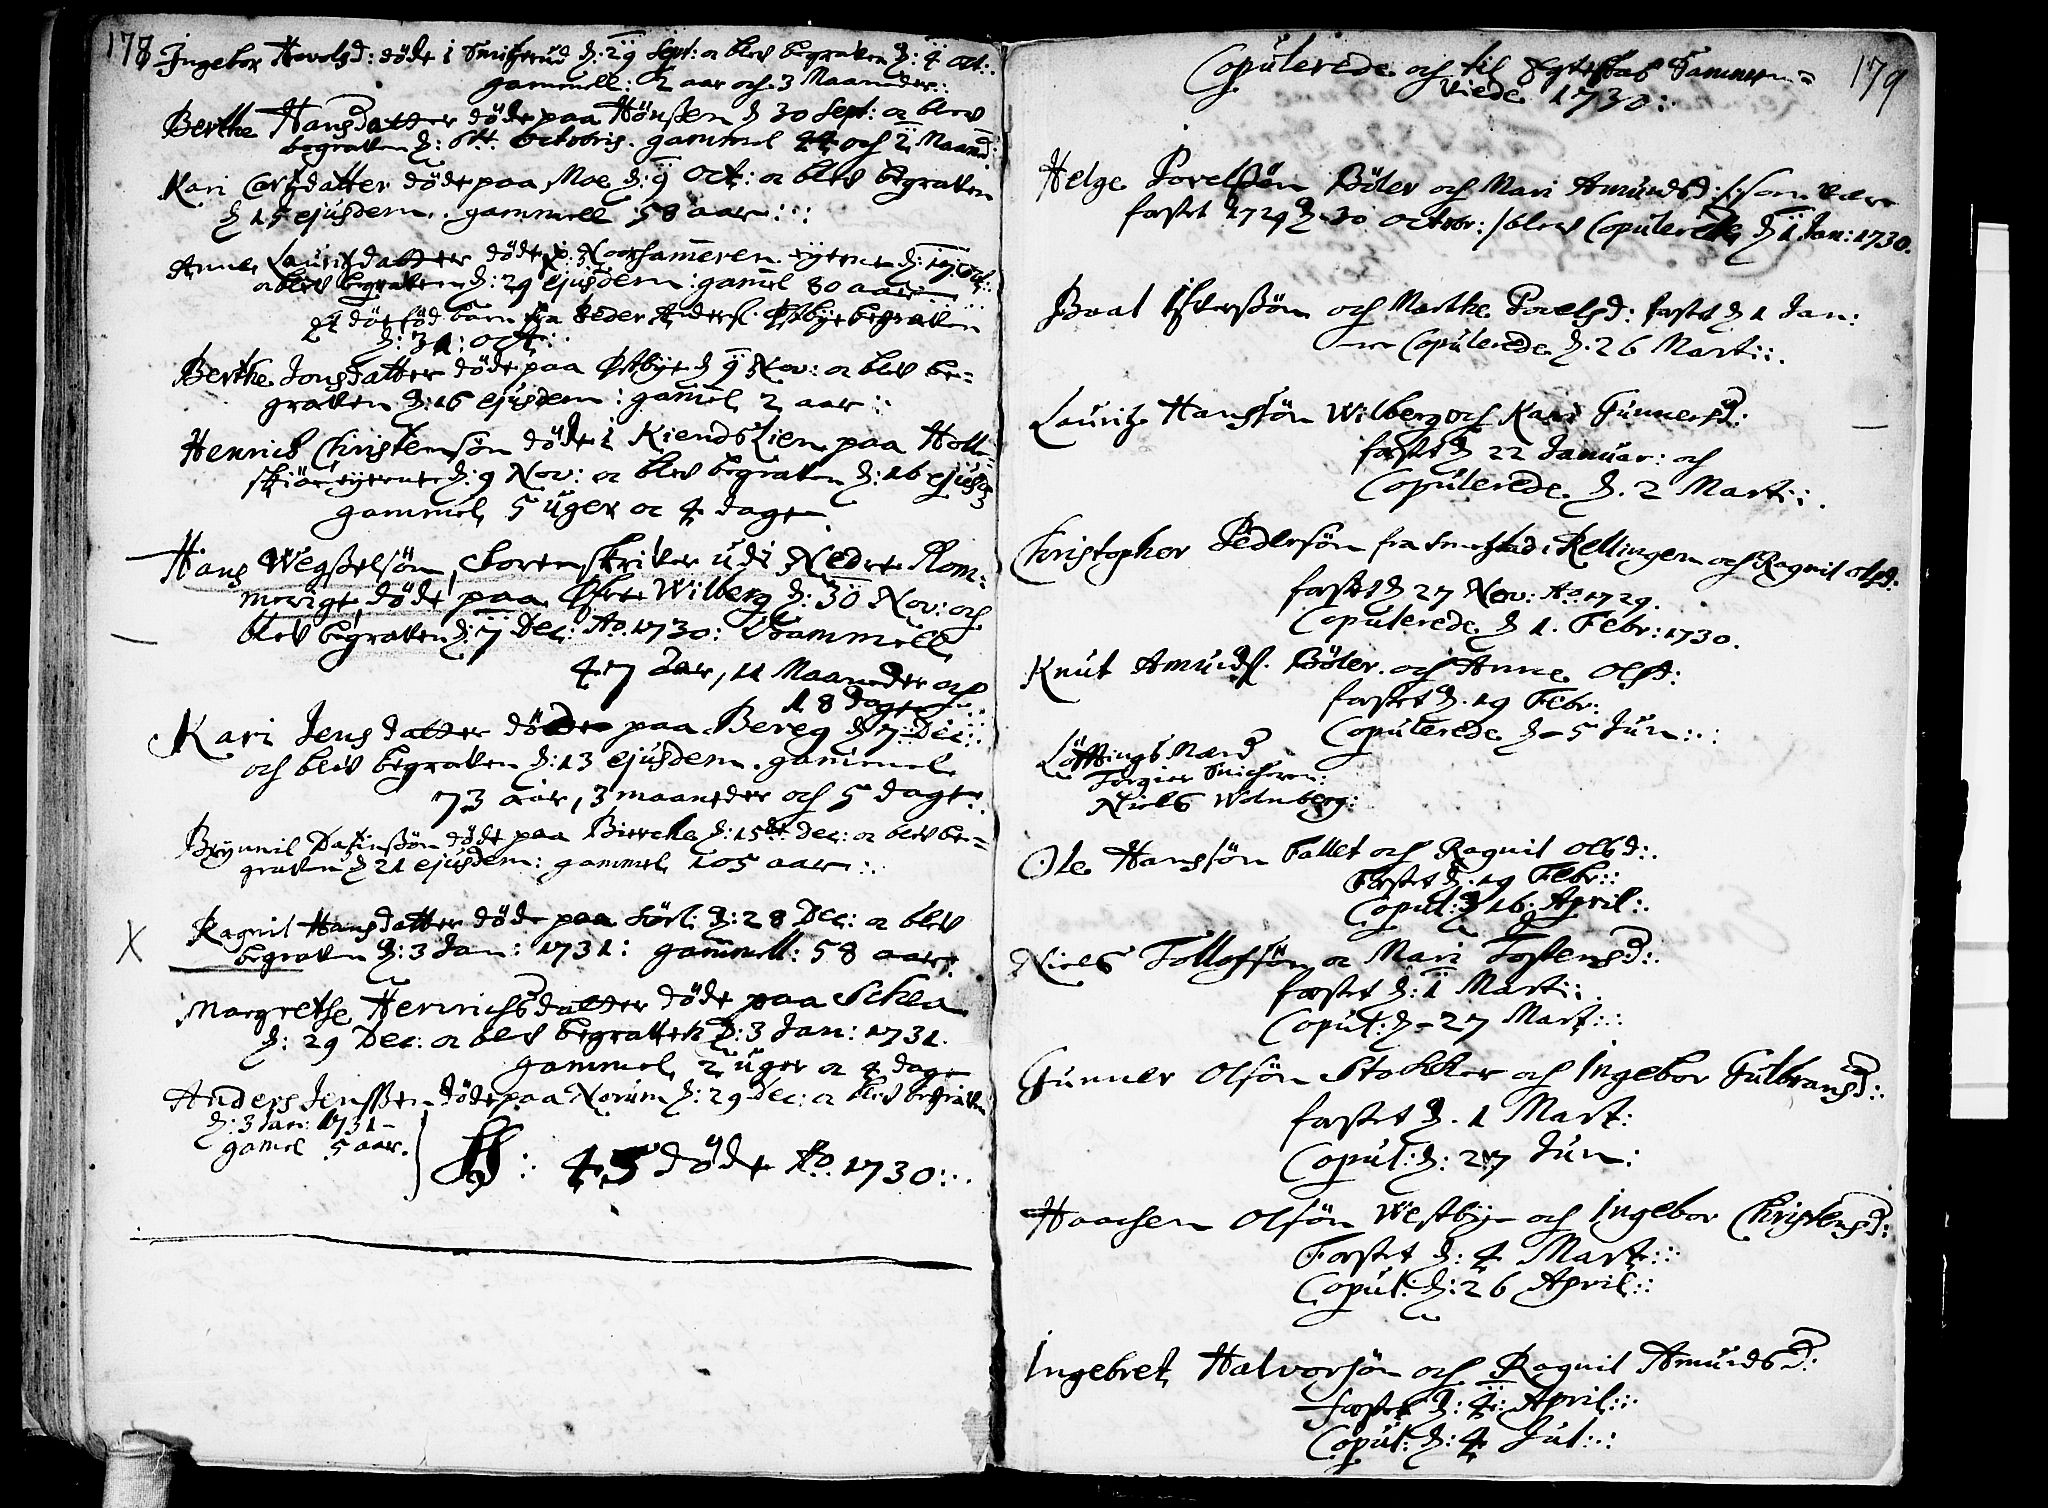 178
Ingebor Havolsd: døde i Smitzrud d: 29 Sept: oc blev begraven d: 4 Oct:
gammell: 2 aar och 3 Maaneder:
Berthe Hansdatter døde paa Hønsen d 30 Sept: oc blev
begraven d: 8tt. Octobris. gammel 44 och 2 Maand:
Kari Carlsdatter døde paa Moe d: 9 Oct: oc blev begraven
d 15 ejusdem. gammell 58 aar:
Anne Lauritzdatter døde p. eyerne d: 19 Oct:
oc blev begraven d: 29 ejusdem: gamel 80 aar
Et dødfød barn fra Peder Anders. Østbye begraven
d: 31: Oct:
Berthe Jonsdatter døde paa Østbye d 9 Nov: oc blev be=
graven d: 16 ejusdem: gamel 2 aar:
Henrich Christensøn døde i Kiendslien paa Holt=
skiør eyerne d: 9 Nov: oc blev begraven d: 16 ejusd
gammel 5 uger oc 4 dage
Hans Wegselsøn, Sorenskriver udi Nedre Rom=
merige, døde paa Øfre Wilberg d: 30 Nov: och
blev begraven d: 7 Dec: Ao. 1730: Gammell
47 Aar, 11 Maaneder och
18 dage
Kari Jensdatter døde paa Bereg d 7: Dec:
och blev begraven d: 13 ejusdem. gammel
73 aar, 3 maaneder och 5 dage
Brynnil døde paa Bierche d: 15de Dec: oc blev be=
graven d 21 ejusdem: gammel 105 aar:
Ragnil Hansdatter døde paa Sørl: d: 28 Dec: oc blev
begraven d: 3 Jan: 1731: gammell: 58 aar:
Margrethe Henrichsdatter døde paa Schea
d: 29 Dec: oc blev begraven d: 3 Jan: 1731.
gammel 2 uger oc 4 dage
Anders Jenssen døde paa Norum d: 29 Dec: oc blev begraven
d: 3 Jan: 1731-
gamel 5 aar.
45 døde Ao. 1730:
179
Copulerede och til Egteskab Sammen=
viede 1730:
Helge Povelsøn Bøler och Mari Amundsd: /: som vare
fæstet 1729 d. 30 Octobr: / blev Copulerede d 1 Jan: 1730.
Boal Ifversøn och Marthe Povelsd: fæstet d 1 Jan:
Copulerede d. 26 Marti:
Lauritz Hanssøn Wilberg och Kari Gunnersd:
fæstet d 22 Januar: och
Copulerede d. 2 Marti:
Christopher Pedersøn fra i Rellingen och Ragnil Olsd.
fæstet d 27 Nov: Ao. 1729.
Copulerede d 1. Febr: 1730.
Knut Amunds. Bøler och Anne Olsd:
fæstet d. 19 Febr:
Copulerede d - 5 Jun:
Løftings Mænd
Torgier
Niels Wolnberg:
Ole Hanssøn Fallet och Ragnil Olsd:
Fæstet d. 19 Febr:
Coput: d 16. April:
Niels Tollofsøn oc Mari Tostensd:
fæstet d: 1 Marti:
Coput: d - 27 Mart:
Gunner Olsøn Stokker och Ingebor Gulbransd:
fæstet d. 1 Mart:
Coput: d: 27 Jun:
Haachen Olsøn Westbye och Ingebor Christensd:
Fæstet d: 4 Mart:
Coput: d: 26 April:
Ingebret Halvorsøn och Ragnil Amundsd:
fæstet d: 4: April:
Coput: d: 4 Jul: